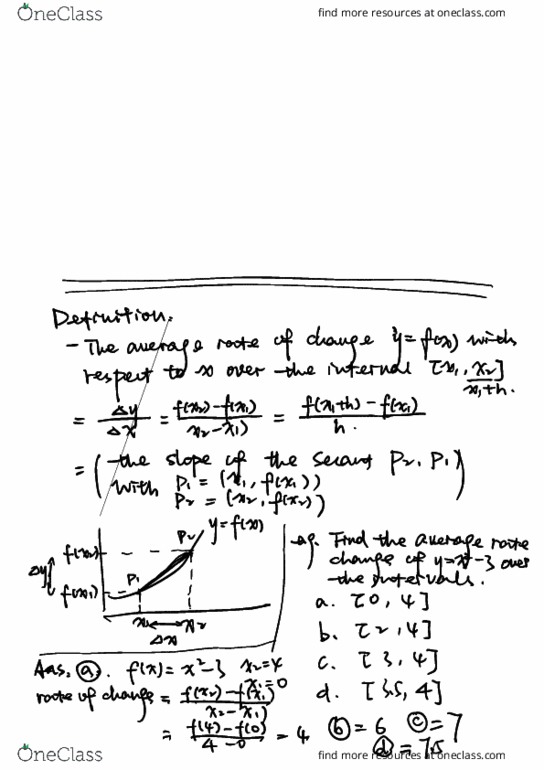 OneClass
find more resources at oneclass.com
Definition:
- The average rate of change y = f(x) with
respect to x over the interval [x₁, x₂]
x₁+h.
= Δy/Δx = f(x₂)-f(x₁)/x₂-x₁) = f(x₁+h)-f(x₁)/h.
= (the slope of the secant P₂, P₁)
with P₁ = (x₁, f(x₁))
P₂ = (x₂, f(x₂))
y=f(x)
P₂
f(x₂)
Δy
P₁
f(x₁)
x₁ x₂
Δx
eg. Find the average rate
change of y=x²-3 over
the intervals.
a. [0, 4]
b. [2, 4]
c. [3, 4]
d. [3.5, 4]
Ans. ⓐ. f(x)= x²-3 x₂=4
x₁=0
rate of change = f(x₂)-f(x₁)/x₂-x₁)
= f(4)-f(0)/4-0 = 4
ⓑ=6 ⓒ=7
ⓓ=7.5
OneClass
find more resources at oneclass.com